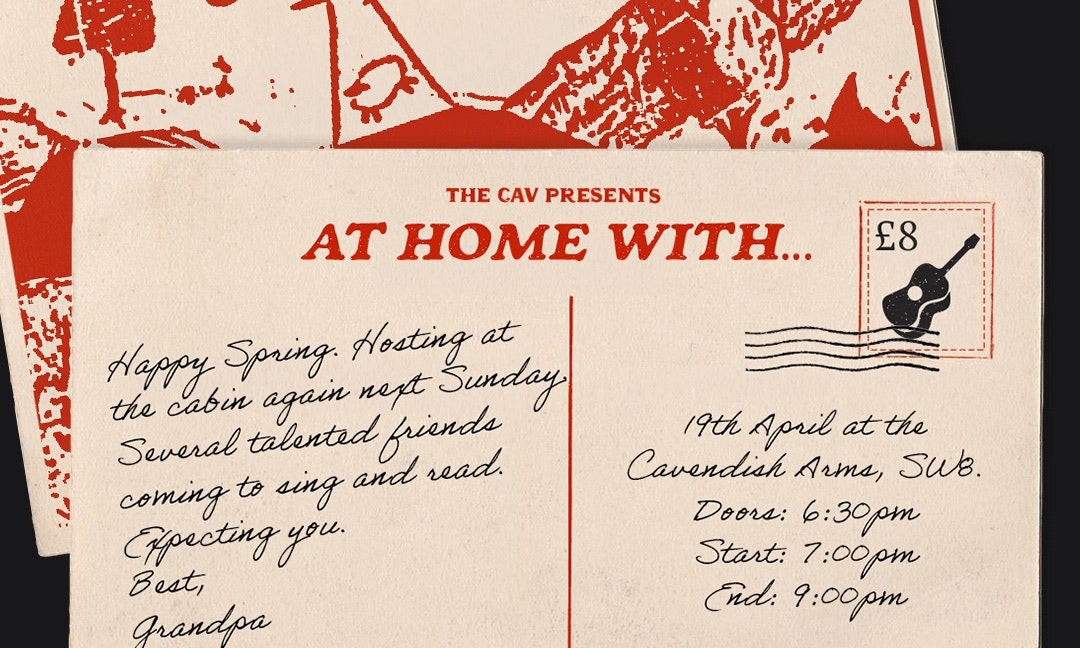 THE CAV PRESENTS
AT HOME WITH...
£8
Happy Spring. Hosting at
the cabin again next Sunday
Several talented friends
coming to sing and read.
Expecting you.
Best,
Grandpa
19th April at the
Cavendish Arms, SW8.
Doors: 6:30pm
Start: 7:00pm
End: 9:00pm